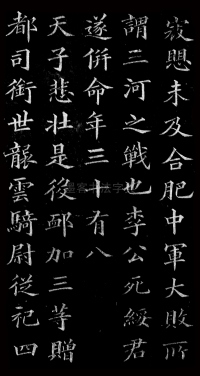 未及合肥中軍大敗所
謂三河之戰也李公死綏君
遂併命年三十有八
天子悲壯是後卹加三等贈
都司銜世襲雲騎尉從祀四